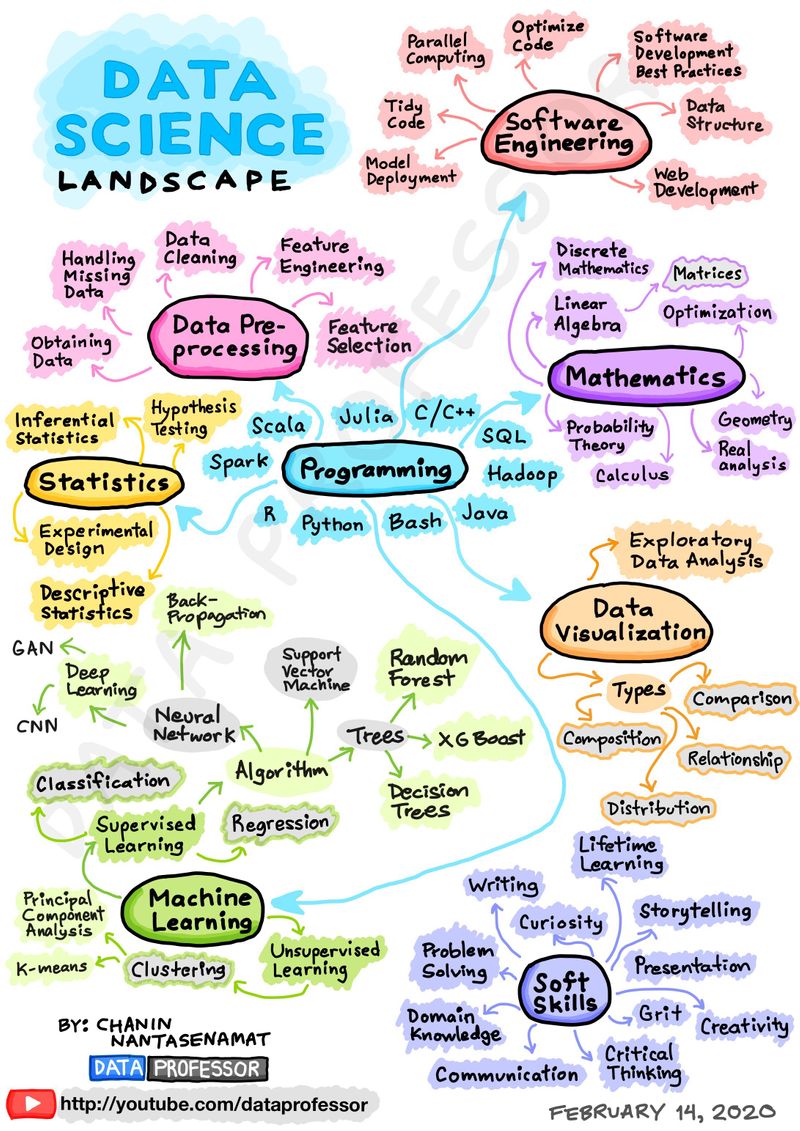 DATA
SCIENCE
LANDSCAPE
Parallel
Computing
Optimize
Code
Software
Development
Best Practices
Tidy
Code
Software
Engineering
Data
Structure
Model
Deployment
Web
Development
Handling
Missing
Data
Data
Cleaning
Feature
Engineering
Obtaining
Data
Data Pre-
processing
Feature
Selection
Discrete
Mathematics
Matrices
Linear
Algebra
Optimization
Mathematics
Probability
Theory
Calculus
Geometry
Real
analysis
Inferential
Statistics
Hypothesis
Testing
Statistics
Experimental
Design
Descriptive
Statistics
Scala
Julia
C/C++
SQL
Spark
Programming
Hadoop
R
Python
Bash
Java
Exploratory
Data Analysis
Data
Visualization
Types
Comparison
Composition
Relationship
Distribution
Back-
Propagation
GAN
Deep
Learning
CNN
Neural
Network
Support
Vector
Machine
Random
Forest
Trees
XGBoost
Algorithm
Decision
Trees
Classification
Supervised
Learning
Regression
Machine
Learning
Principal
Component
Analysis
K-means
Clustering
Unsupervised
Learning
Lifetime
Learning
Writing
Curiosity
Storytelling
Problem
Solving
Soft
Skills
Presentation
Domain
Knowledge
Grit
Creativity
Communication
Critical
Thinking
BY: CHANIN
NANTASENAMAT
DATA PROFESSOR
http://youtube.com/dataprofessor
FEBRUARY 14, 2020
DATA PROFESSOR